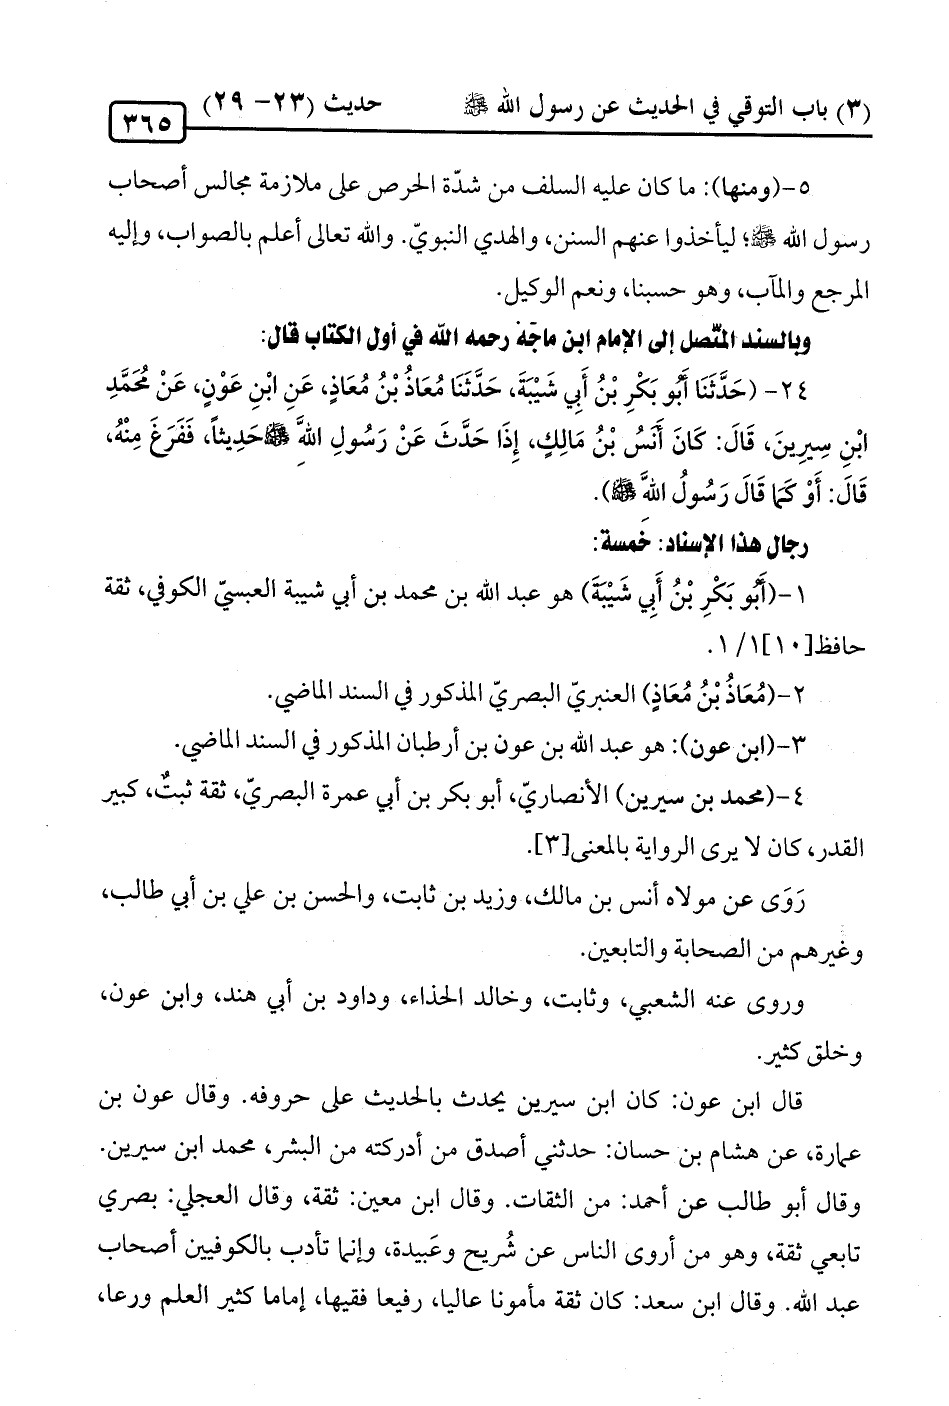 (٣) باب التوقي في الحديث عن رسول الله ﷺ حديث (٢٣- ٢٩)
٣٦٥
٥-(ومنها): ما كان عليه السلف من شدّة الحرص على ملازمة مجالس أصحاب
رسول الله ﷺ؛ ليأخذوا عنهم السنن، والهدي النبويّ. والله تعالى أعلم بالصواب، وإليه
المرجع والمآب، وهو حسبنا، ونعم الوكيل.
وبالسند المتّصل إلى الإمام ابن ماجَهْ رحمه الله في أول الكتاب قال:
٢٤- (حَدَّثَنَا أَبُو بَكْرِ بْنُ أَبِي شَيْبَةَ، حَدَّثَنَا مُعَاذُ بْنُ مُعَاذٍ، عَنِ ابْنِ عَوْنٍ، عَنْ مُحَمَّدِ
ابْنِ سِيرِينَ، قَالَ: كَانَ أَنَسُ بْنُ مَالِكٍ، إِذَا حَدَّثَ عَنْ رَسُولِ اللهَِّ ﷺ حَدِيثاً، فَفَرَغَ مِنْهُ،
قَالَ: أَوْ كَمَا قَالَ رَسُولُ اللهَِّ ﷺ).
رجال هذا الإسناد: خمسة:
١-(أَبُو بَكْرِ بْنُ أَبِي شَيْبَةَ) هو عبد الله بن محمد بن أبي شيبة العبسيّ الكوفي، ثقة
حافظ[١٠]١/١.
٢-(مُعَاذُ بْنُ مُعَاذٍ) العنبريّ البصريّ المذكور في السند الماضي.
٣-(ابن عون): هو عبد الله بن عون بن أرطبان المذكور في السند الماضي.
٤-(محمد بن سيرين) الأنصاريّ، أبو بكر بن أبي عمرة البصريّ، ثقة ثبتٌ، كبير
القدر، كان لا يرى الرواية بالمعنى[٣].
رَوَى عن مولاه أنس بن مالك، وزيد بن ثابت، والحسن بن علي بن أبي طالب،
وغيرهم من الصحابة والتابعين.
وروى عنه الشعبي، وثابت، وخالد الحذاء، وداود بن أبي هند، وابن عون،
وخلق كثير.
قال ابن عون: كان ابن سيرين يحدث بالحديث على حروفه. وقال عون بن
عمارة، عن هشام بن حسان: حدثني أصدق من أدركته من البشر، محمد ابن سيرين.
وقال أبو طالب عن أحمد: من الثقات. وقال ابن معين: ثقة، وقال العجلي: بصري
تابعي ثقة، وهو من أروى الناس عن شُريح وعَبيدة، وإنما تأدب بالكوفيين أصحاب
عبد الله. وقال ابن سعد: كان ثقة مأمونا عاليا، رفيعا فقيها، إماما كثير العلم ورعا،